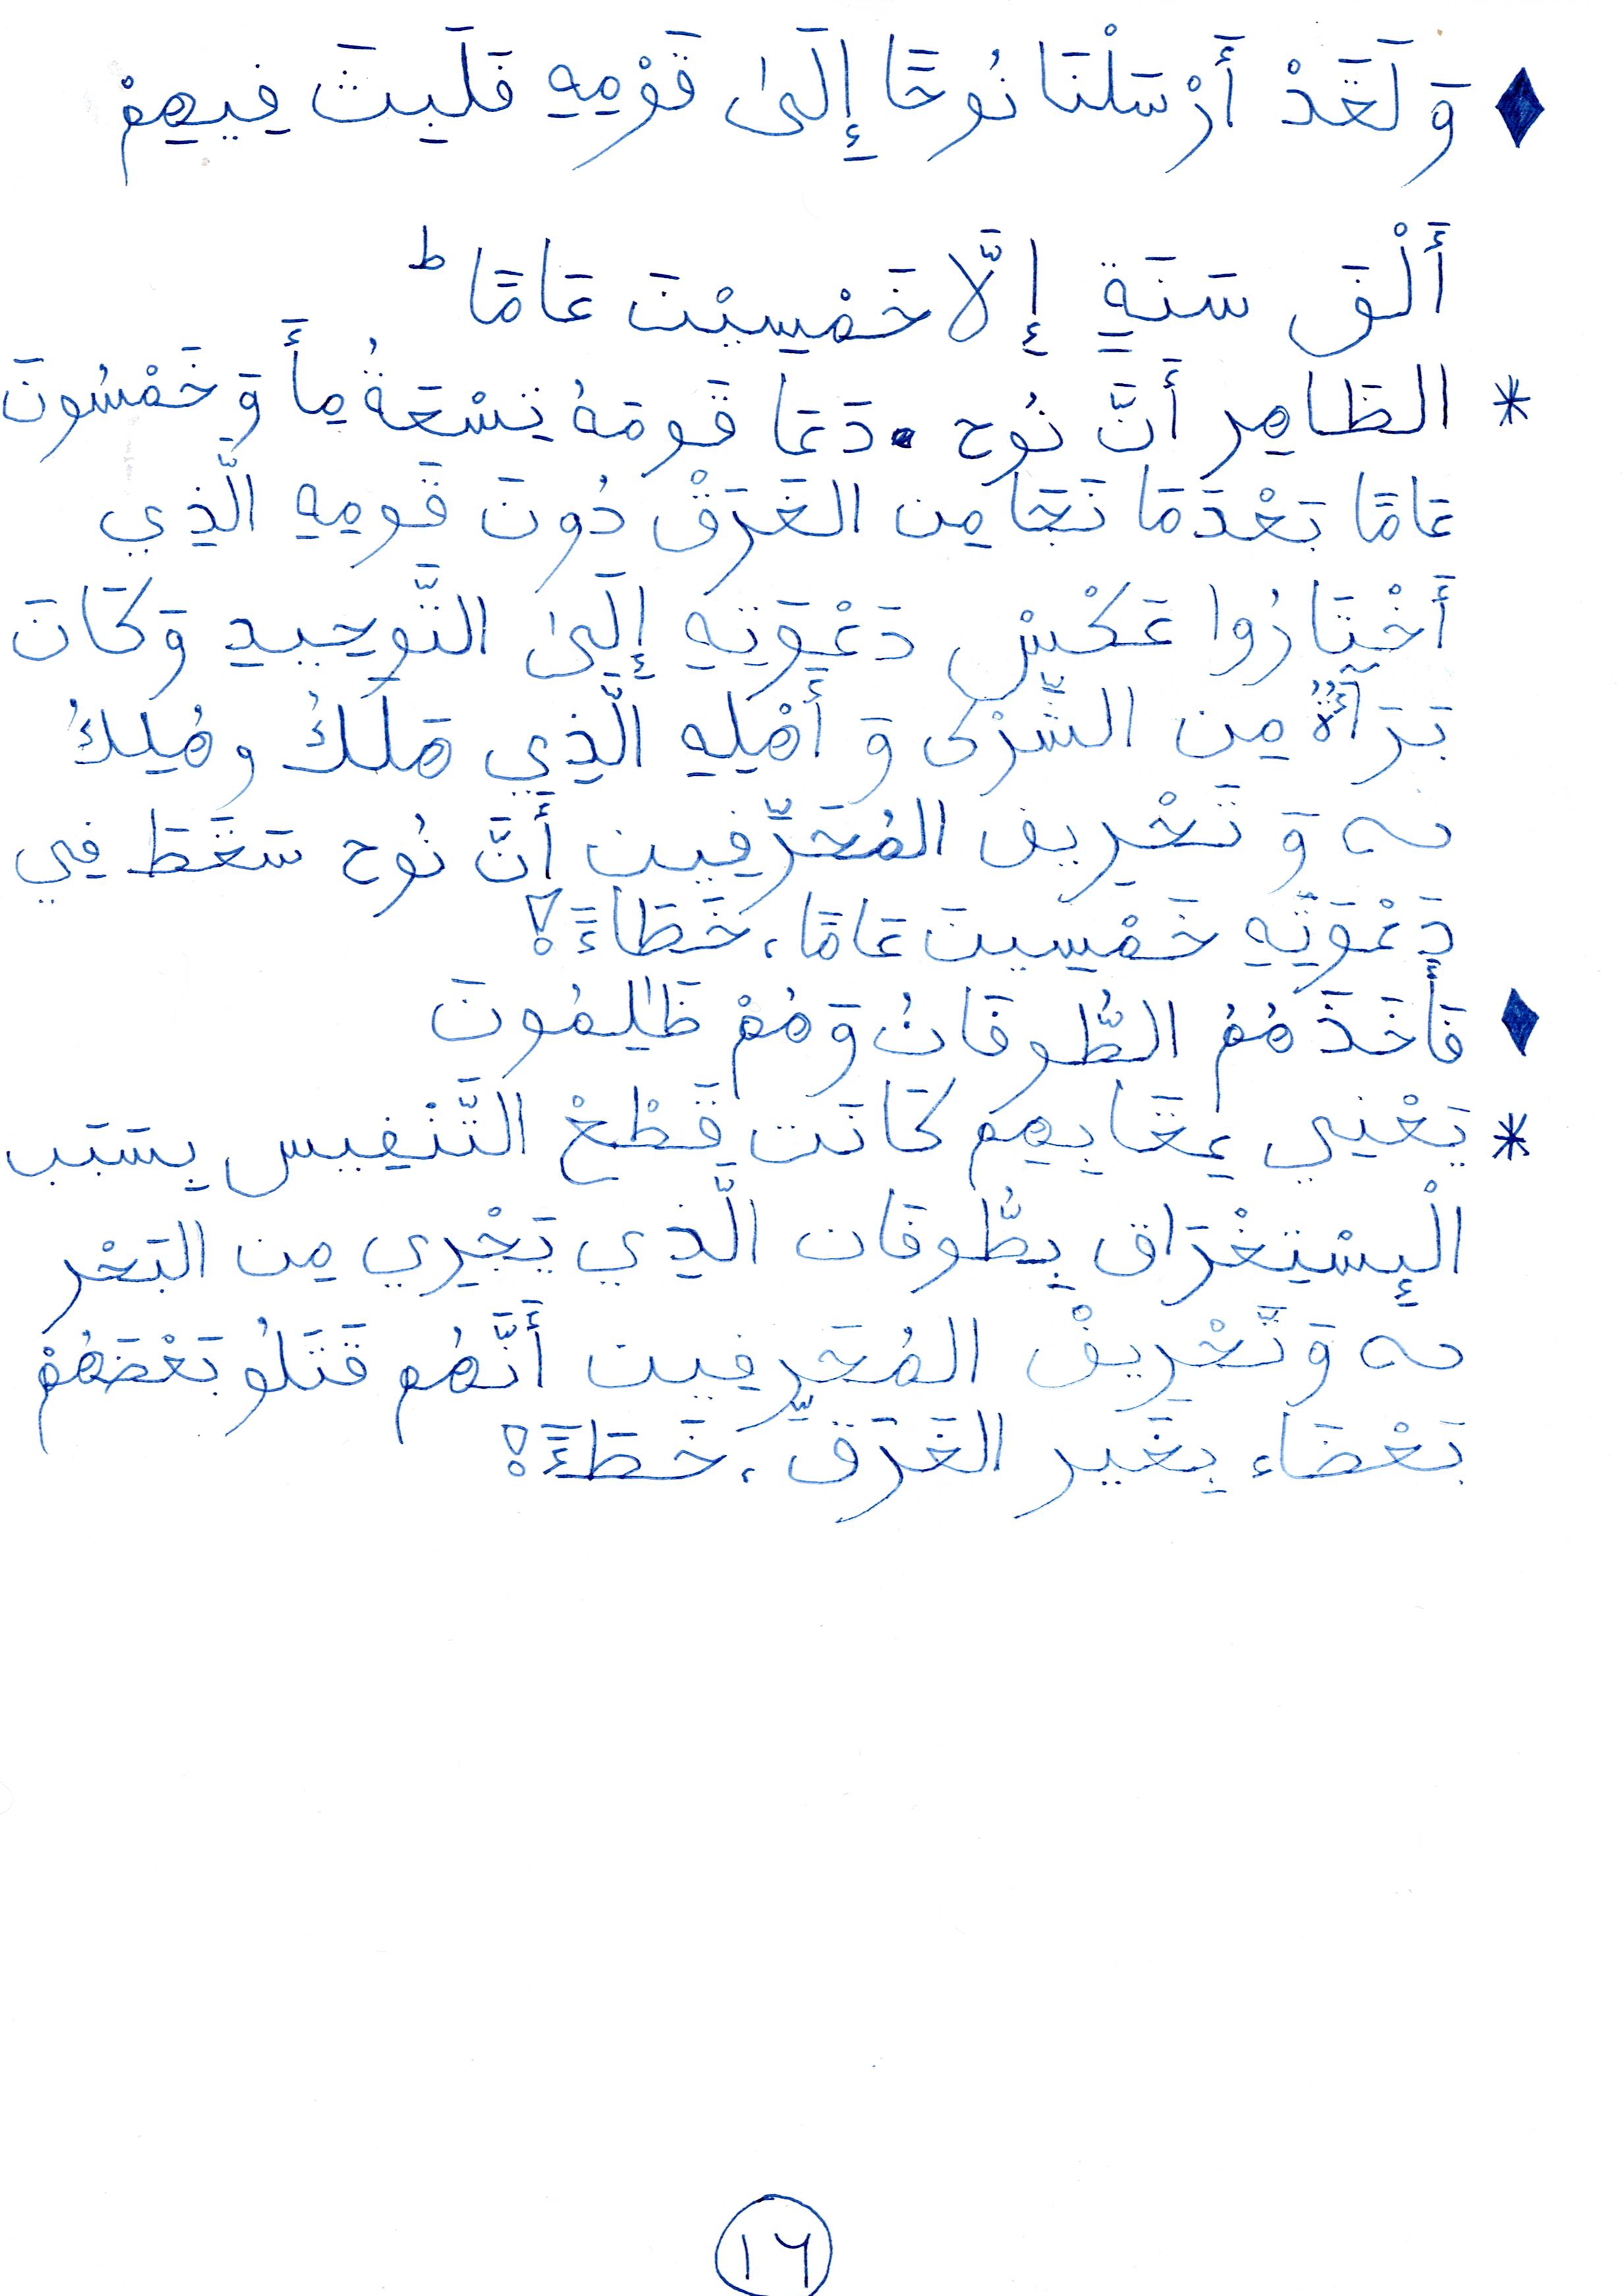 ♦ وَلَقَدْ أَرْسَلْنَا نُوحًا إِلَىٰ قَوْمِهِ فَلَبِثَ فِيهِمْ
أَلْفَ سَنَةٍ إِلَّا خَمْسِيْنَ عَامًا ط
* الظَاهِر أَنَّ نُوح دَعَا قَومَهُ تِسْعَةُ مِأَ وَ خَمْسُونَ
عَامًا بَعْدَمَا نَجَا مِن الغَرَقْ دُونَ قَومِهِ الَّذِي
أَخْتَارُوا عَكْسْ دَعْوَتِهِ إِلَىٰ التَّوحِيدِ وَكَانَ
بَرَآءَةٌ مِن الشِّرْك وَ أَهْلِهِ الَّذِي هَلَكُ و هُلِكُ
ىه وَ تَحْرِيف المُحَرِّفِين أَنَّ نُوح سَقَطَ فِي
دَعْوَتِهِ خَمْسِينَ عَامًا، خَطَاءً؟
♦ فَأَخَذَهُمُ الطُّوفَانُ وَهُمْ ظَٰلِمُونَ
* يَعْنِي عِقَابِهِم كَانَت قَطْعْ التَّنْفِيس بِسَبَب
الْإِسْتِغْرَاق بِطُّوفَان الَّذِي يَجْرِي مِن البَحْر
ىه وَ تَّحْرِيفْ المُحَرِّفِين أَنَّهُم قَتَلُو بَعْضَهُمْ
بَعْضَاء بِغَير الغَرَق، خَطَءً؟
١٦